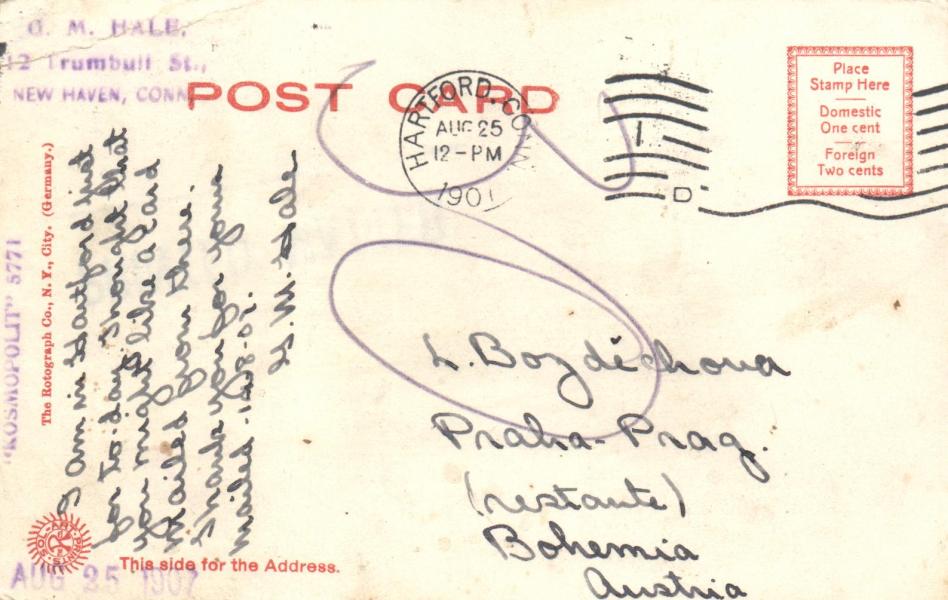 G. M. HALE,
12 Trumbull St.,
NEW HAVEN, CONN
POST CARD
HARTFORD, CONN.
AUG 25
12-PM
1907
D
Place
Stamp Here
Domestic
One cent
Foreign
Two cents
"KOSMOPOLIT" 5771
The Rotograph Co., N. Y., City. (Germany.)
I am in Hartford just
for to-day. Thought that
you might like a card
mailed from there.
Thank you for yours
mailed
G. M. Hale
L. Bozděchova
Praha-Prag.
(restante)
Bohemia
Austria
SOL-ART PRINTS
This side for the Address.
AUG 25 1907